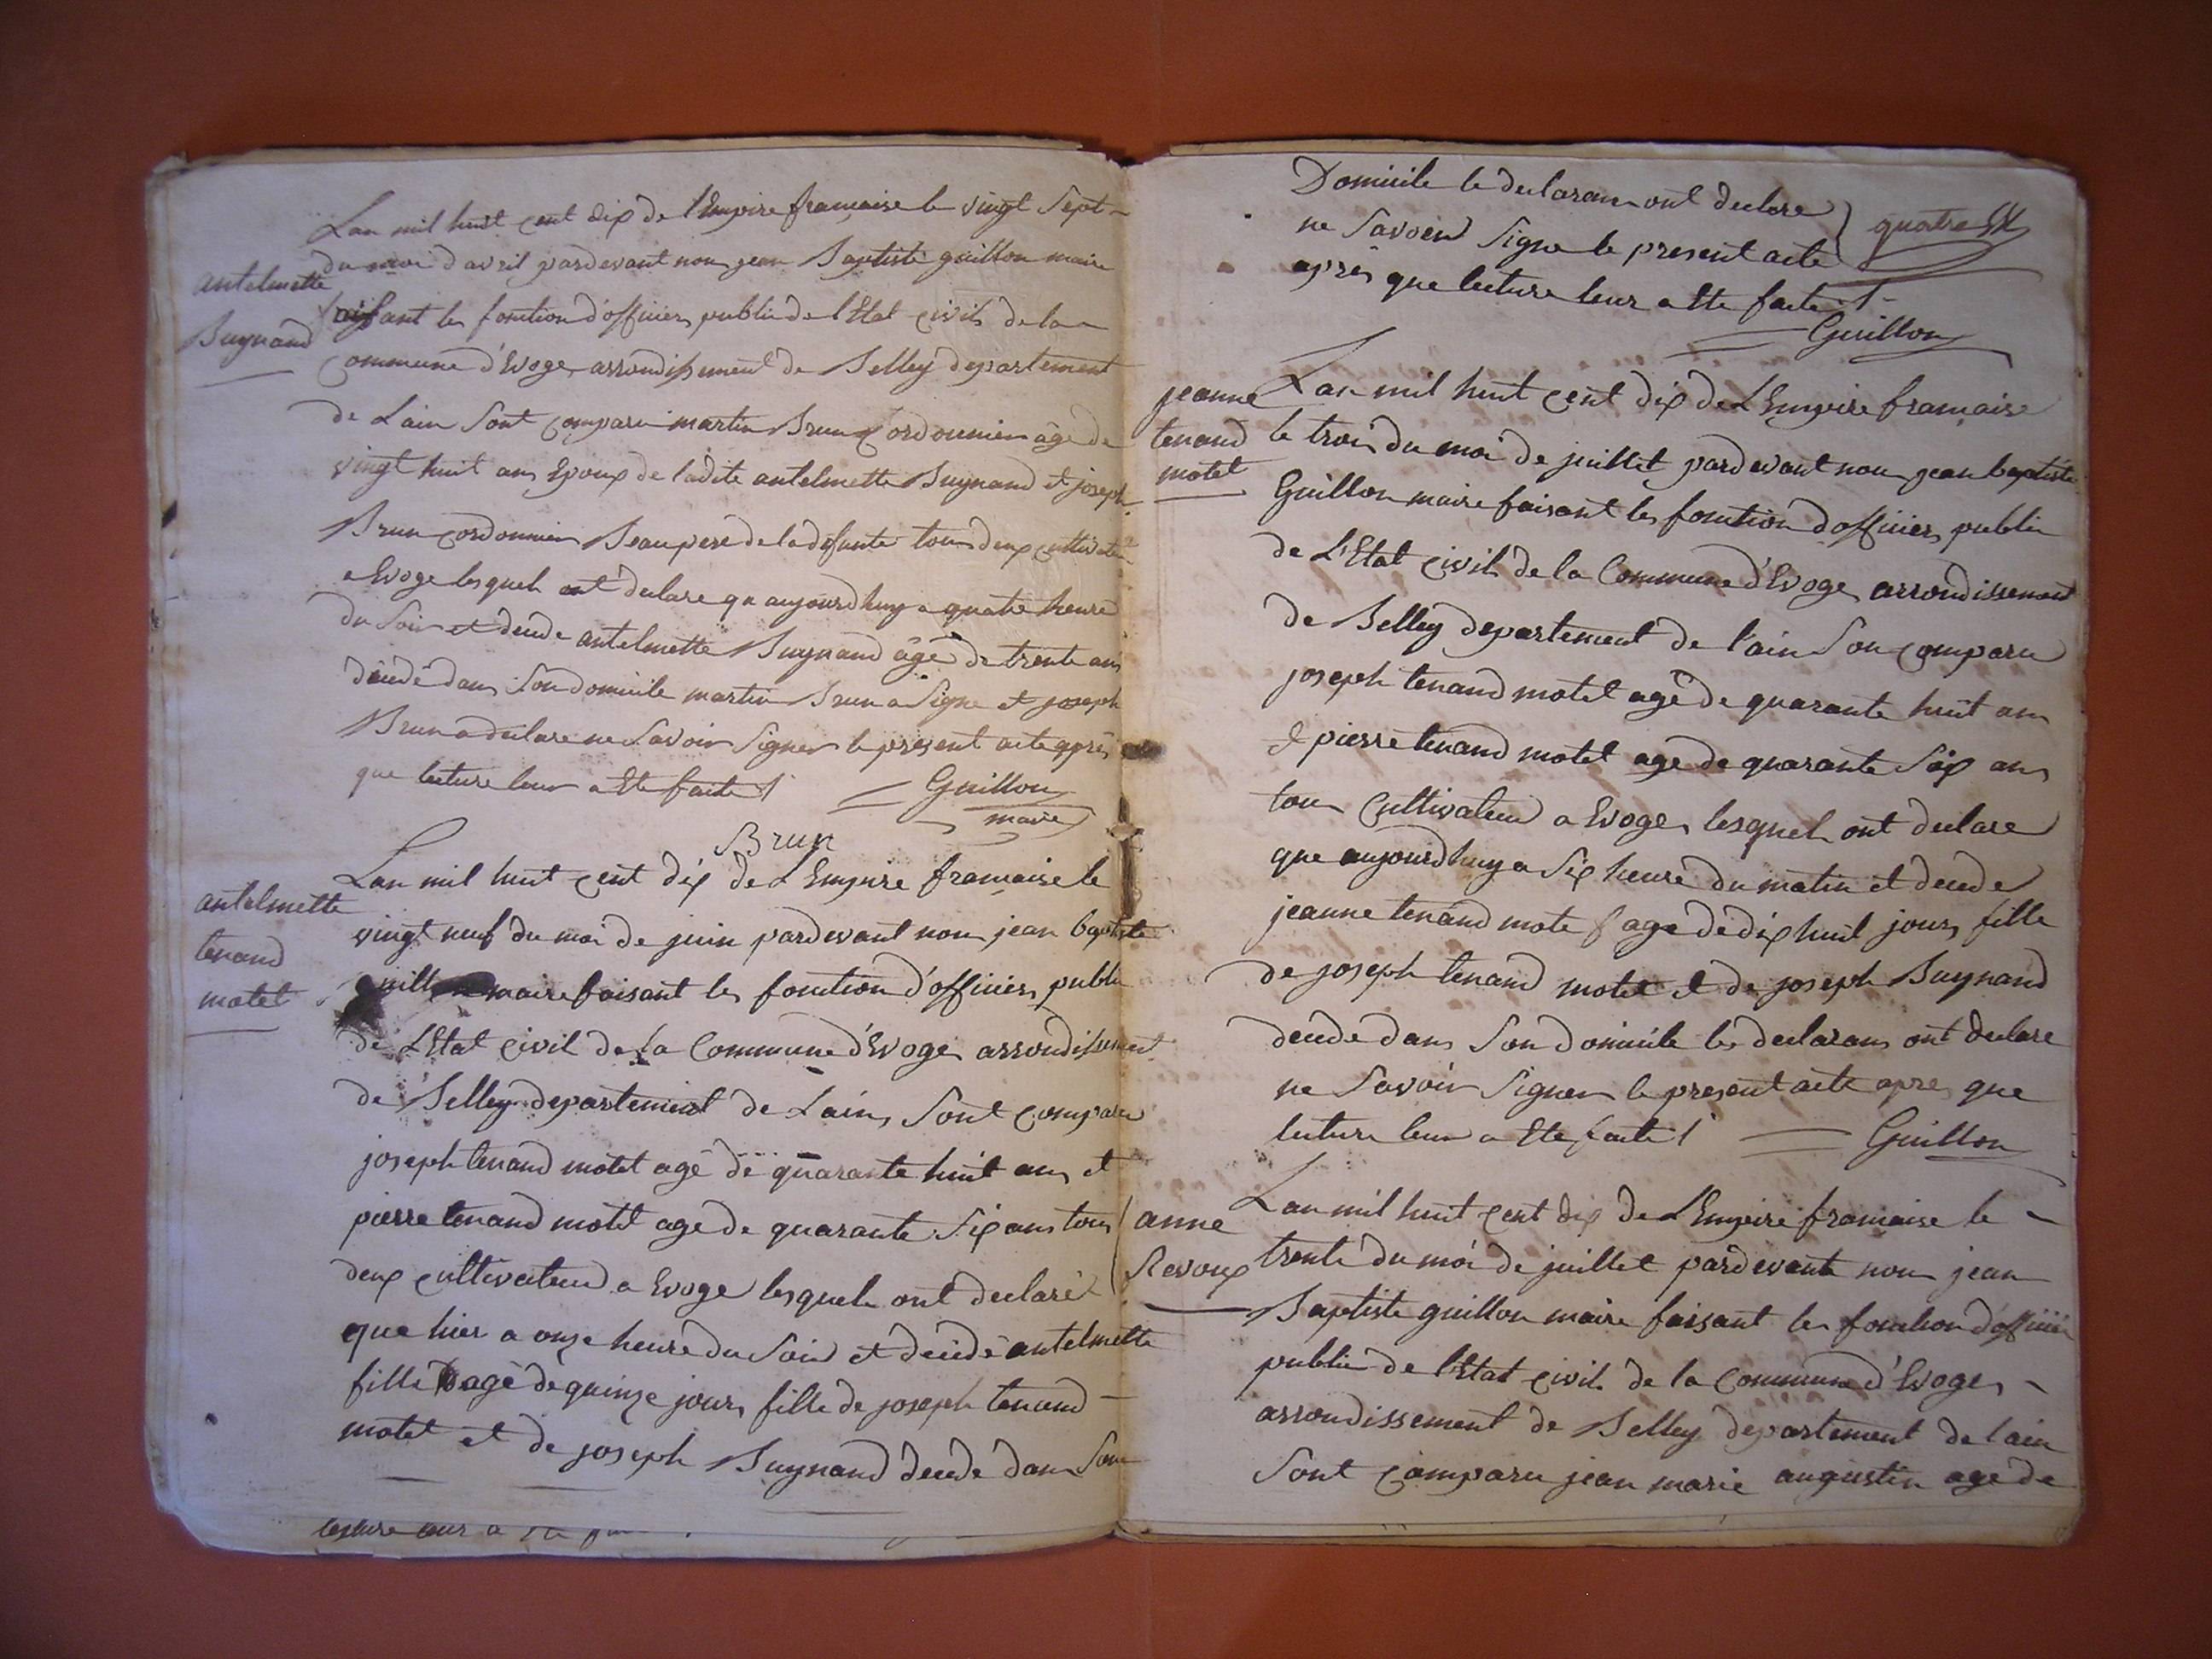 antelmette
Buynand
Lan mil huit cent dix de l'Empire francaise le vingt Sept
du moi d'avril pardevant nou jean Baptiste guillon maire
faisant les fonction d'officier public de l'Etat civil de la
Commune d'Evoge arrondissement de Belley departement
de Lain Sont comparu martin Brun Cordonnier âge de
vingt huit ans Epoux de ladite antelmette Buynand et joseph
Brun cordonnier Beaupere de la defunte tous deux cultivateur
a Evoge lesquels ont declare qu aujourdhuy a quatre heure
du Soir et decede antelmette Buynand âgé de trente ans
décédé dans Son domicile martin Brun a Signe et joseph
Brun a declare ne Savoir Signer le present acte après
que lecture leur a Ete faite /
Guillon
maire
Brun
antelmette
tenand
motet
Lan mil huit cent dix de L'Empire francaise le
vingt neuf du moi de juin pardevant nou jean baptiste
maire faisant les fonction d'officier public
de L'Etat civil de la Commune d'Evoge arrondissement
de Belley departement de Lain, Sont comparu
joseph tenand motet agé de quarante huit ans et
pierre tenand motet age de quarante Six ans tous
deux cultivateur a Evoge lesquels ont declaré
que hier a onze heure du Soir et décédé antelmette
fille agé de quinze jours fille de joseph tenand
motet et de joseph Buynand decede dans Son
lecture leur a Ete
Domicile le declarans ont declare
ne Savoir Signe le present acte
après que lecture leur a Ete faite /
quatre
Guillon
jeanne
tenand
motet
Lan mil huit cent dix de L'Empire francaise
le trois du moi de juillet pardevant nou jean baptiste
Guillon maire faisant les fonction d'officier public
de L'Etat civil de la Commune d'Evoge arrondissement
de Belley departement de l'ain Son comparu
joseph tenand motet agé de quarante huit ans
et pierre tenand motet age de quarante Six ans
tous Cultivateur a Evoge, lesquels ont declare
que aujourdhuy a Six heure du matin et decede
jeanne tenand mote f age de dix huit jours, fille
de joseph tenand motet et de joseph Buynand
decede dans Son domicile les declarans ont declare
ne Savoir Signer le present acte apres que
lecture leur a Ete faite /
Guillon
anne
Revoux
Lan mil huit cent dix de L'Empire francaise le
trente du moi de juillet pardevant nou jean
Baptiste guillon maire faisant les fonction d'officier
public de l'Etat civil de la Commune d'Evoge
arrondissement de Belley departement de lain
Sont comparu jean marie augustin age de